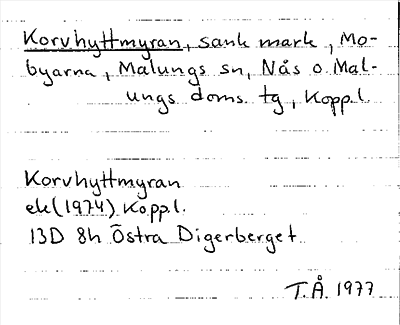 Korvhyttmyran, sank mark, Mo-
byarna, Malungs sn, Nås o. Mal-
ungs doms. tg, Koppl.
Korvhyttmyran
ek (1974) Koppl.
13D 8h Östra Digerberget
T.Å. 1977